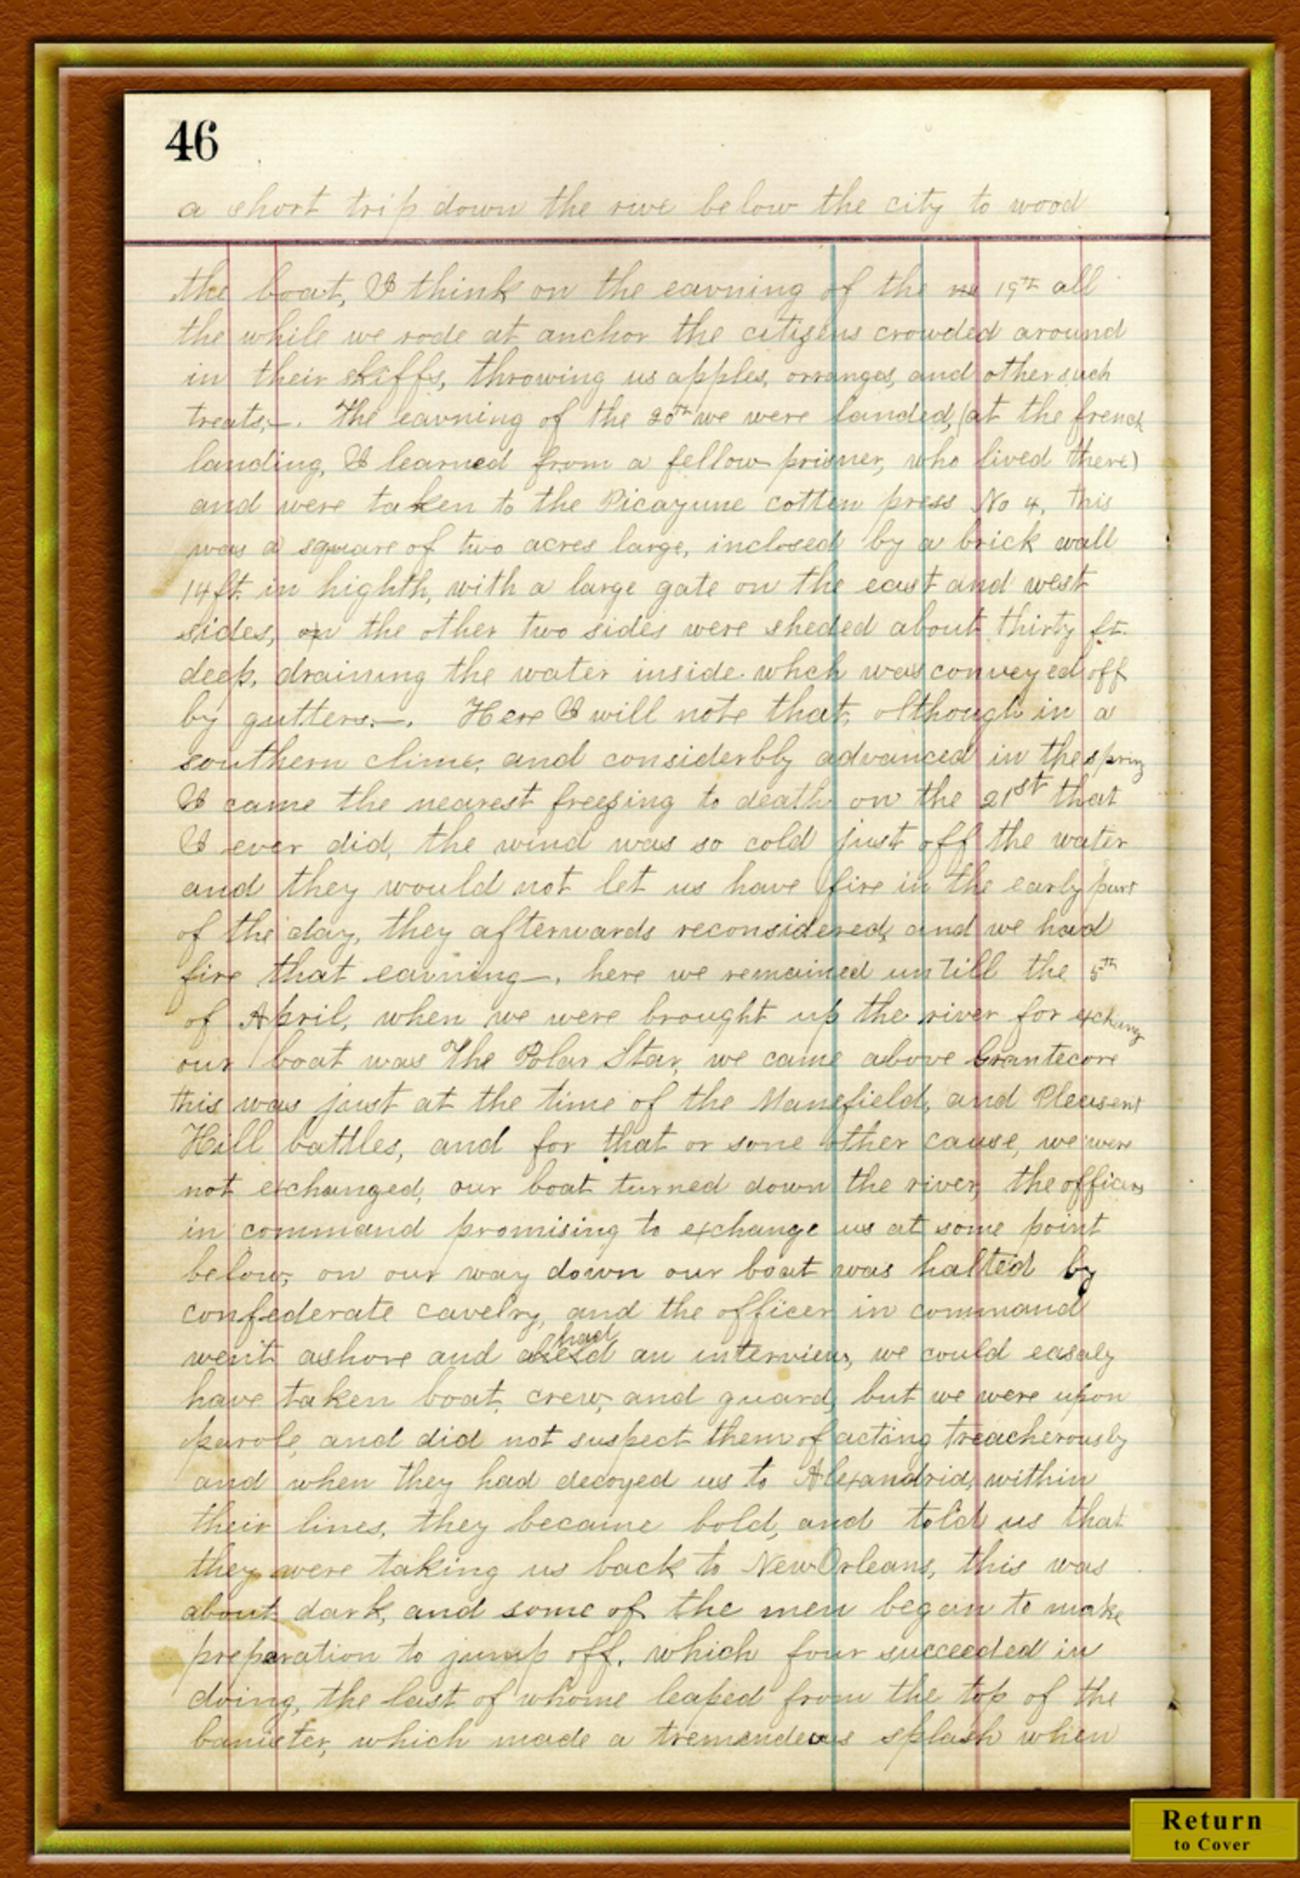 46
a short trip down the rive below the city to wood
the boat, I think on the eavning of the no 19th all
the while we rode at anchor the citizens crowded around
in their skiffs, throwing us apples, orranges, and other such
treats;—. The eavning of the 20th we were landed, (at the french
landing, I learned from a fellow prisner, who lived there)
and were taken to the Picayune cotten press No 4, this
was a square of two acres large, inclosed by a brick wall
14 ft. in highth, with a large gate on the east and west
sides, on the other two sides were sheded about thirty ft.
deep, draining the water inside which was conveyed off
by gutters.—. Here I will note that, although in a
southern clime, and considerbly advanced in the spring
I came the nearest freezing to death on the 21st that
I ever did, the wind was so cold just off the water
and they would not let us have fire in the early part
of the day, they afterwards reconsidered, and we had
fire that eavning—, here we remained untill the 5th
of April, when we were brought up the river for exchang
our boat was The Polar Star, we came above Grantecore
this was just at the time of the Mansfield, and Pleasent
Hill battles, and for that or some other cause, we were
not exchanged, our boat turned down the river, the officers
in command promising to exchange us at some point
below, on our way down our boat was halted by
confederate cavelry, and the officer in command
went ashore and had an interview, we could easaly
have taken boat, crew, and guard, but we were upon
parole, and did not suspect them of acting treacherously
and when they had decoyed us to Alexandria, within
their lines, they became bold, and told us that
they were taking us back to New Orleans, this was
about dark, and some of the men began to make
preparation to jump off, which four succeeded in
doing, the last of whome leaped from the top of the
banister, which made a tremendeous splash when
Return
to Cover